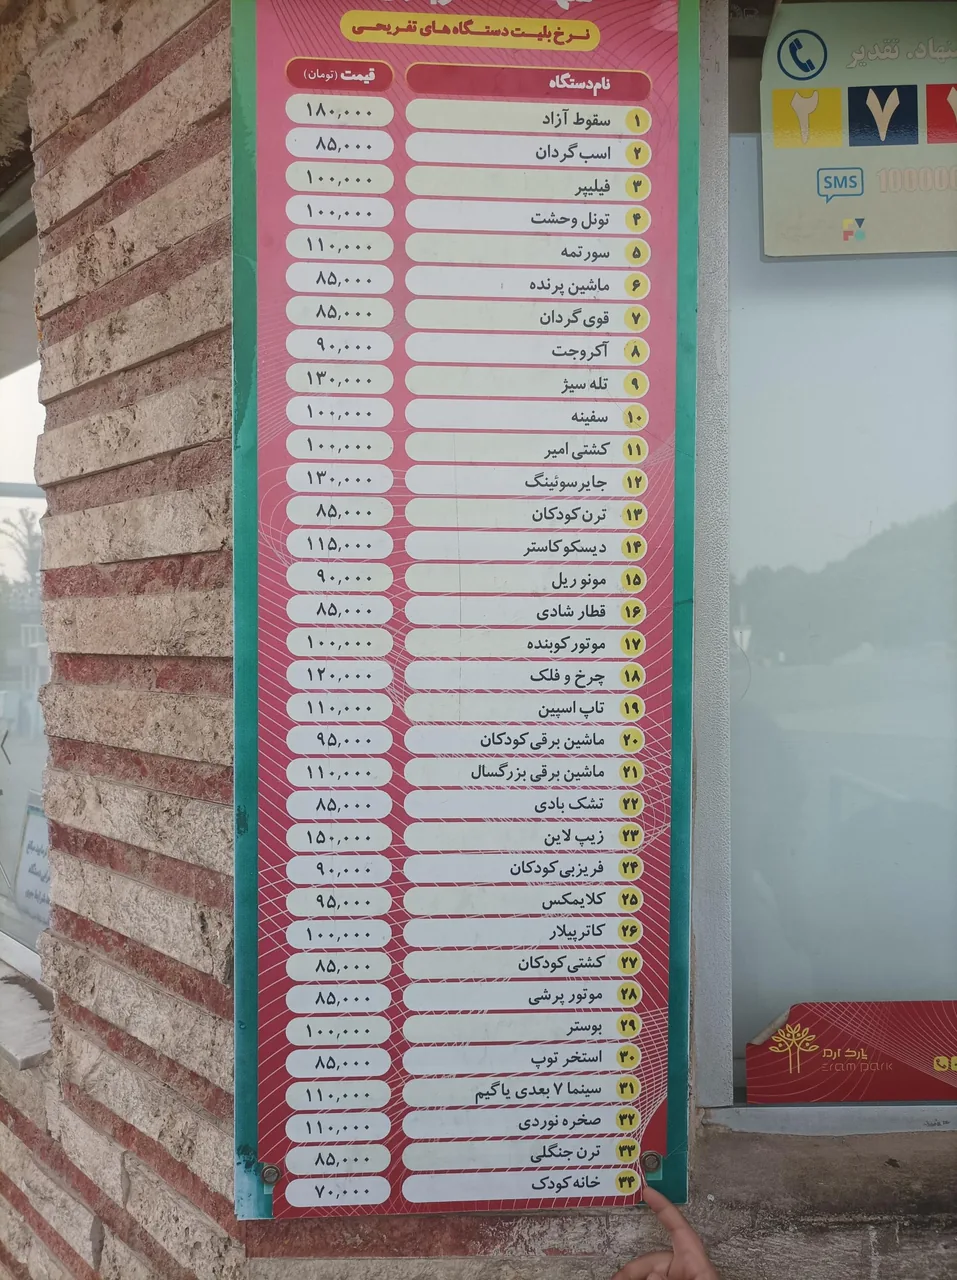 نرخ بلیت دستگاه های تفریحی
نام دستگاه قیمت (تومان)
۱ سقوط آزاد ۱۸۰,۰۰۰
۲ اسب گردان ۸۵,۰۰۰
۳ فیلیپر ۱۰۰,۰۰۰
۴ تونل وحشت ۱۰۰,۰۰۰
۵ سورتمه ۱۱۰,۰۰۰
۶ ماشین پرنده ۸۵,۰۰۰
۷ قوی گردان ۸۵,۰۰۰
۸ آکروجت ۹۰,۰۰۰
۹ تله سیژ ۱۳۰,۰۰۰
۱۰ سفینه ۱۰۰,۰۰۰
۱۱ کشتی امیر ۱۰۰,۰۰۰
۱۲ جایرسوئینگ ۱۳۰,۰۰۰
۱۳ ترن کودکان ۸۵,۰۰۰
۱۴ دیسکو کاستر ۱۱۵,۰۰۰
۱۵ مونو ریل ۹۰,۰۰۰
۱۶ قطار شادی ۸۵,۰۰۰
۱۷ موتور کوبنده ۱۰۰,۰۰۰
۱۸ چرخ و فلک ۱۲۰,۰۰۰
۱۹ تاپ اسپین ۱۱۰,۰۰۰
۲۰ ماشین برقی کودکان ۹۵,۰۰۰
۲۱ ماشین برقی بزرگسال ۱۱۰,۰۰۰
۲۲ تشک بادی ۸۵,۰۰۰
۲۳ زیپ لاین ۱۵۰,۰۰۰
۲۴ فریزبی کودکان ۹۰,۰۰۰
۲۵ کلایمکس ۹۵,۰۰۰
۲۶ کاترپیلار ۱۰۰,۰۰۰
۲۷ کشتی کودکان ۸۵,۰۰۰
۲۸ موتور پرشی ۸۵,۰۰۰
۲۹ بوستر ۱۰۰,۰۰۰
۳۰ استخر توپ ۸۵,۰۰۰
۳۱ سینما ۷ بعدی یاگیم ۱۱۰,۰۰۰
۳۲ صخره نوردی ۱۱۰,۰۰۰
۳۳ ترن جنگلی ۸۵,۰۰۰
۳۴ خانه کودک ۷۰,۰۰۰
تقدیر
۲ ۷ ۱
SMS
پارک ارم
eram park